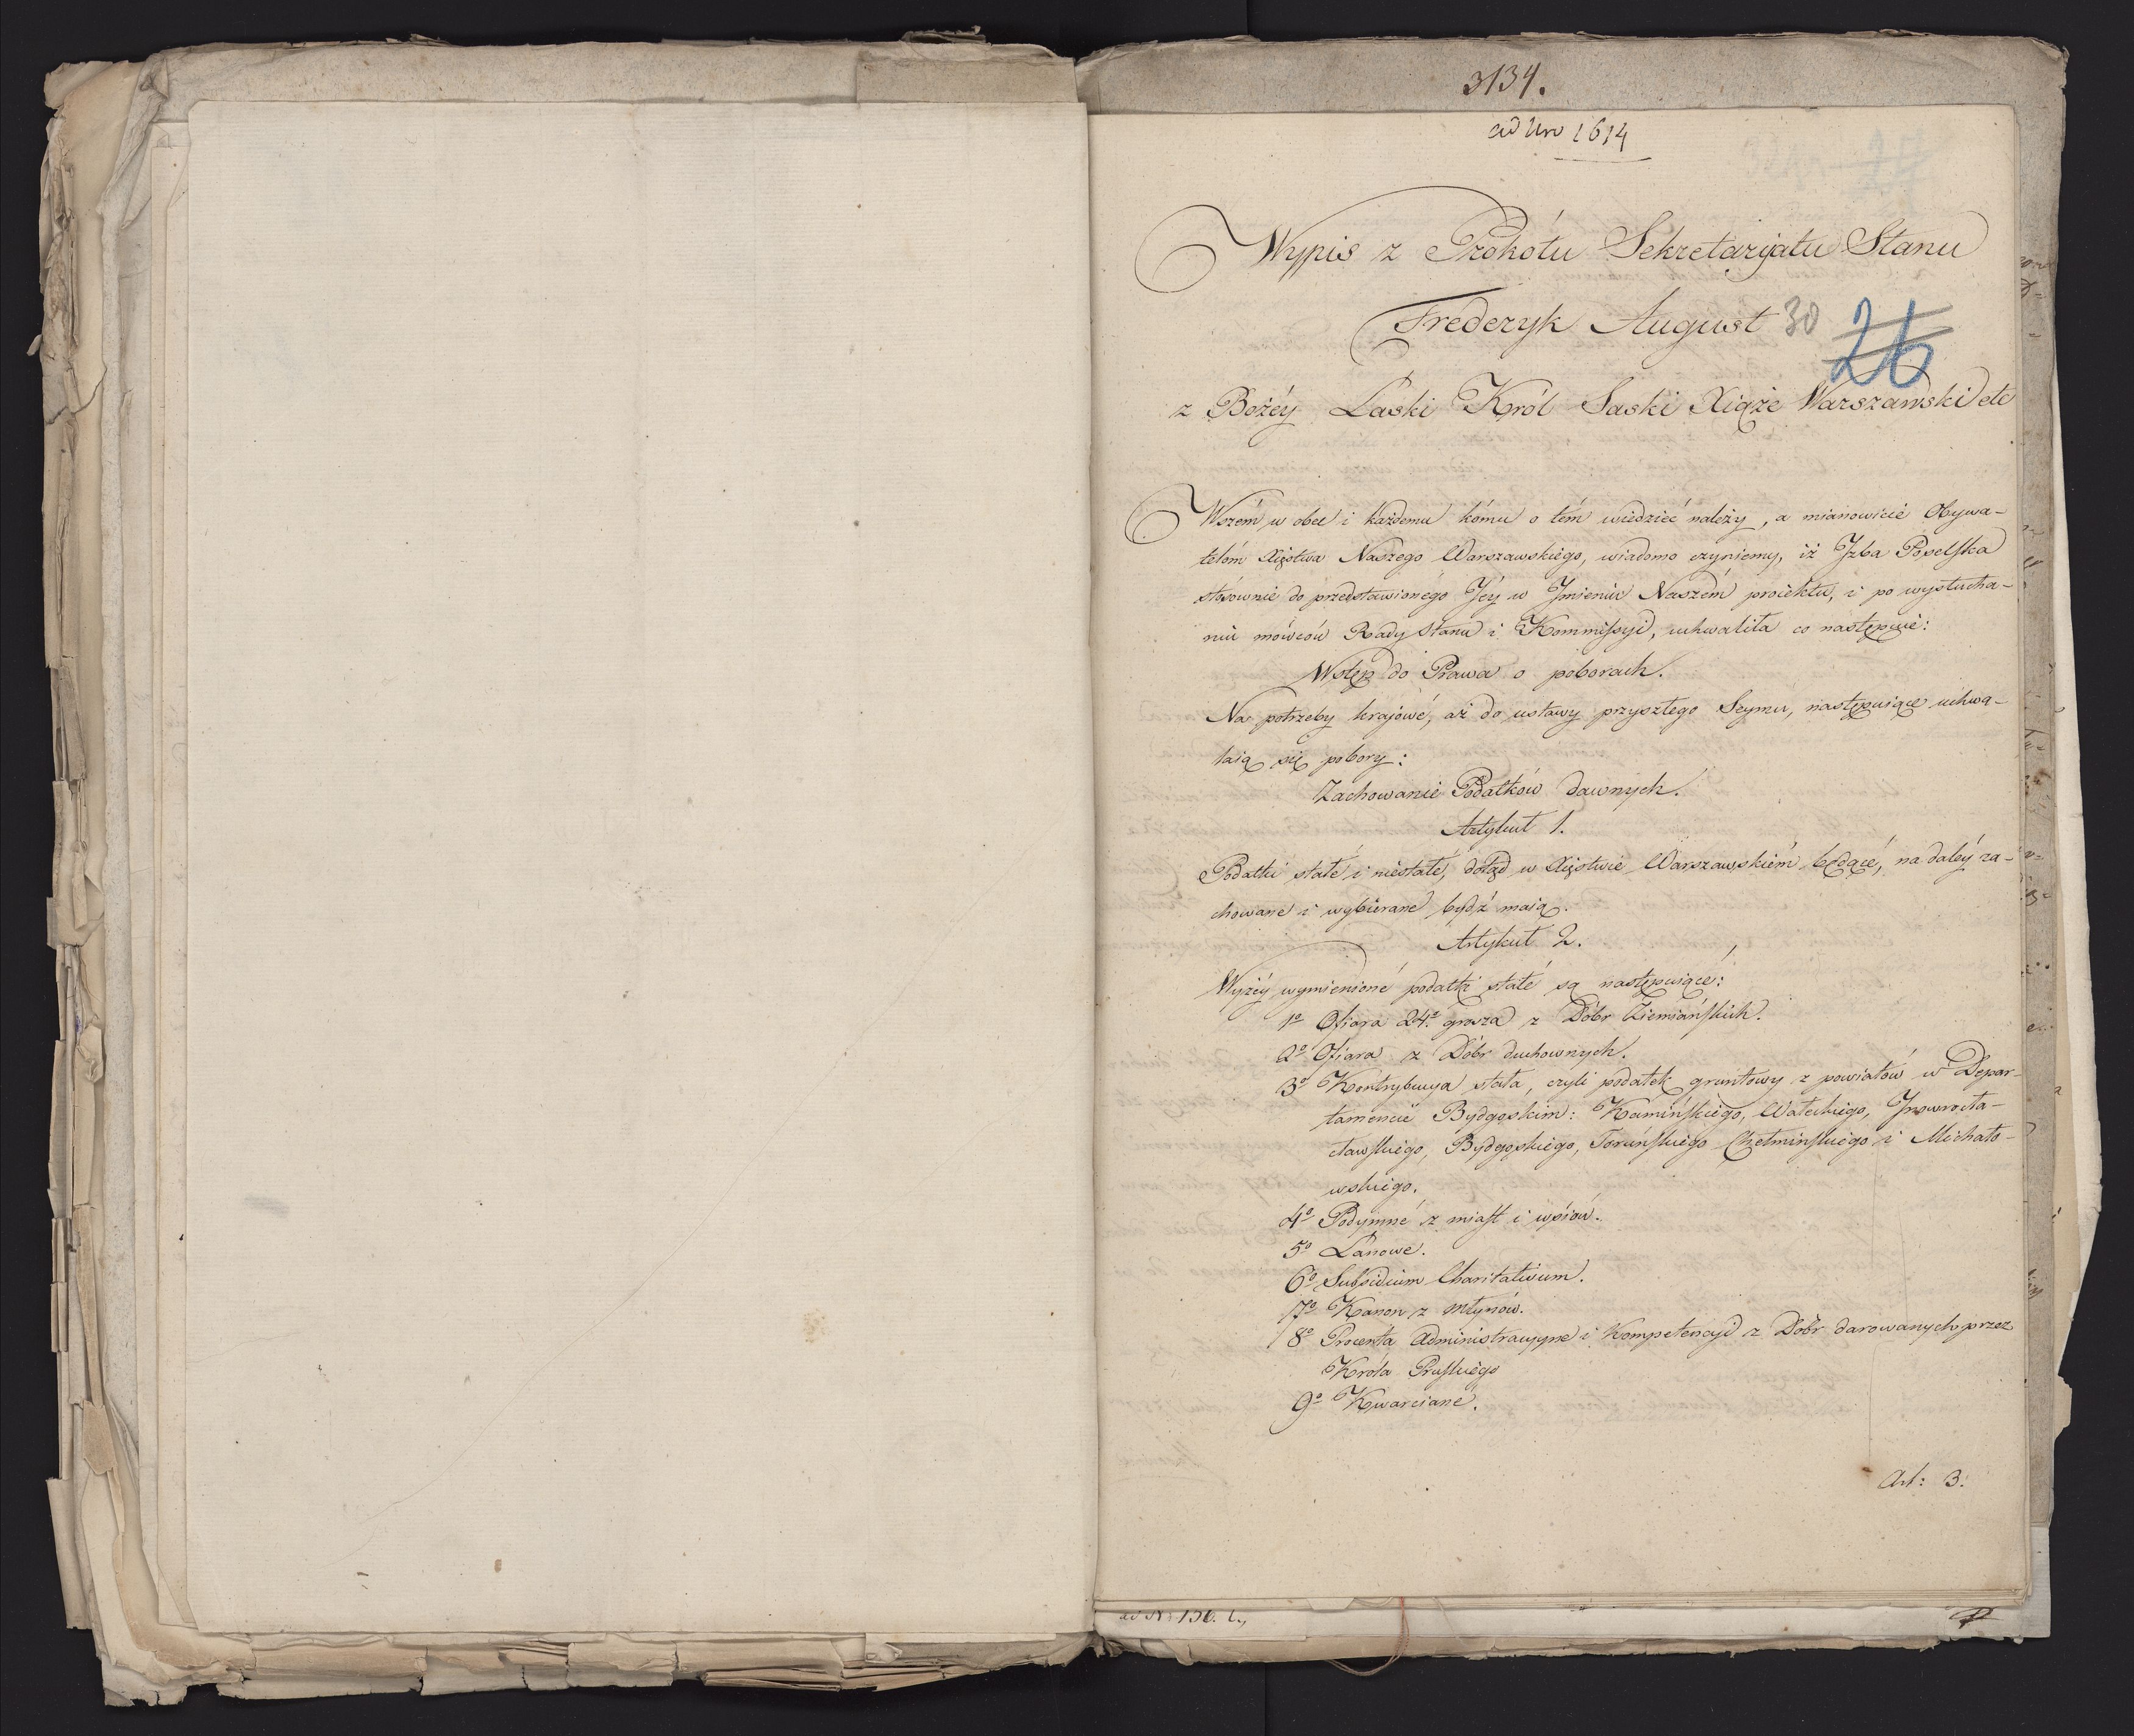 3134.
ad Nro 1614
Wypis z Prokółu Sekretaryatu Stanu
Frederyk August 30
26
z Bożéy Łaski Król Saski Xiąże Warszawski etc
Wszém w obec i każdemu kómu o tém wiedzieć należy, a mianowicie Obywa-
telóm Xięstwa Naszego Warszawskiego, wiadomo czyniemy, iż Jzba Poselska
stósownie do przedstawionégo Jéy w Jmieniu Naszém proiektu, i po wysłucha-
niu mówców Rady Stanu i Kommissyi, uchwaliła co następuie:
Wstęp do Prawa o poborach.
Na potrzeby krajowé, aż do ustawy przyszłego Seymu, następuiące uchwa-
laią się pobory:
Zachowanie Podatków dawnych.
Artykuł 1.
Podatki stałé i niestałé, dotąd w Xięstwie Warszawskiém będącé, na daléy za-
chowané i wybierané bydź maią.
Artykuł 2.
Wyżéy wymienioné podatki stałé są następuiącé:
1o Ofiara 24o grosza z Dóbr Ziemiańskich.
2o Ofiara z Dóbr duchownych.
3o Kontrybucya stała, czyli podatek gruntowy z powiatów w Depar-
tamencie Bydgoskim: Kamińskiego, Wałeckiego, Jnowrocła-
cławskiego, Bydgoskiego, Toruńskiego Chełmińskiego i Michało-
wskiego.
4o Podymné z miast i wsiów.
5o Łanowe.
6o Subsidium Charitativum.
7o Kanon z młynów.
8o Procenta Administracyyne i Kompetencyi z Dóbr darowanych przez
Króla Pruskiégo
9o Kwarciane.
Art: 3.